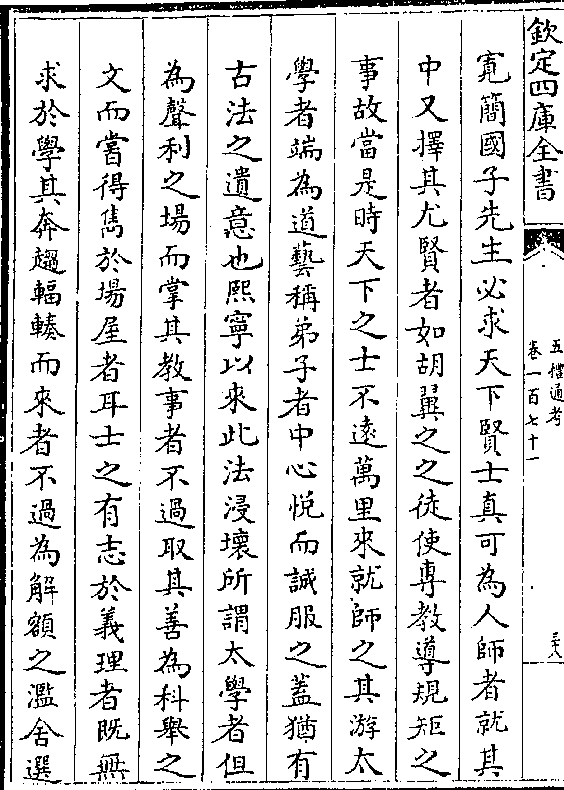 欽定四庫全書
五禮通考
卷一百七十一
三八
寛簡國子先生必求天下賢士真可為人師者就其
中又擇其尤賢者如胡翼之之徒使専教導規矩之
事故當是時天下之士不逺萬里來就師之其游太
學者端為道藝稱弟子者中心悦而誠服之蓋猶有
古法之遺意也熙寧以來此法浸壞所謂太學者但
為聲利之場而掌其教事者不過取其善為科舉之
文而嘗得雋於場屋者耳士之有志於義理者既無
求於學其奔趨輻輳而來者不過為解額之濫舍選